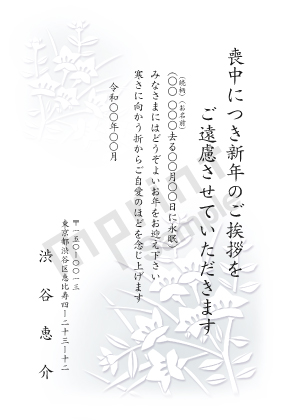 喪中につき新年のご挨拶を
ご遠慮させていただきます
(続柄) (お名前)
〇〇 〇〇〇去る〇〇月〇〇日に永眠
みなさまにはどうぞよいお年をお迎え下さい
寒さに向かう折からご自愛のほどを念じ上げます
令和〇〇年〇〇月
〒一五〇-〇〇一三
東京都渋谷区恵比寿四-二十三-十二
渋谷恵介
sample